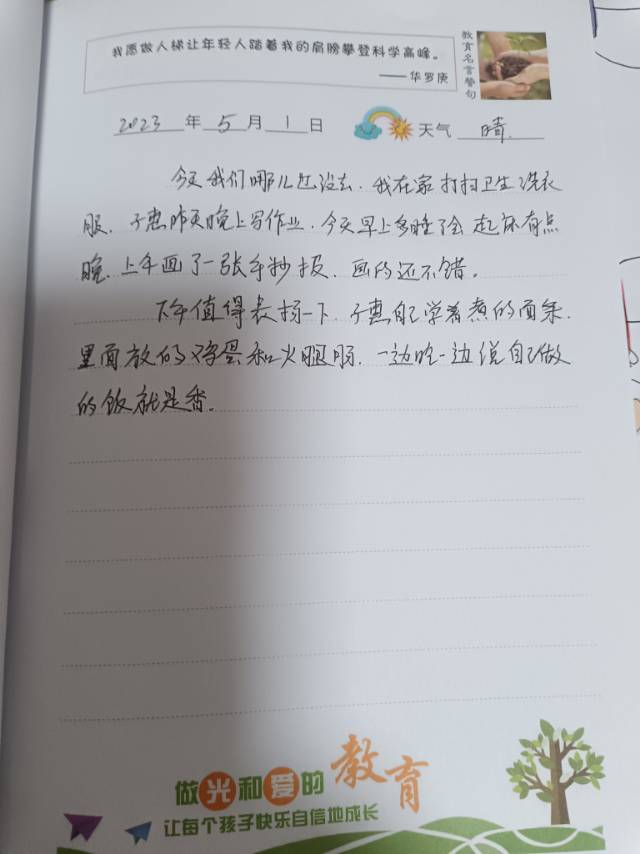 我愿做人梯让年轻人踏着我的肩膀攀登科学高峰。
——华罗庚
教育名言警句
2023年5月1日 天气 晴.
今天我们哪儿也没去.我在家打扫卫生洗衣
服.子惠昨天晚上写作业.今天早上多睡了会起床有点
晚.上午画了一张手抄报.画的还不错。
下午值得表扬一下.子惠自己学着煮的面条.
里面放的鸡蛋和火腿肠.一边吃一边说自己做
的饭就是香.
做光和爱的教育
让每个孩子快乐自信地成长